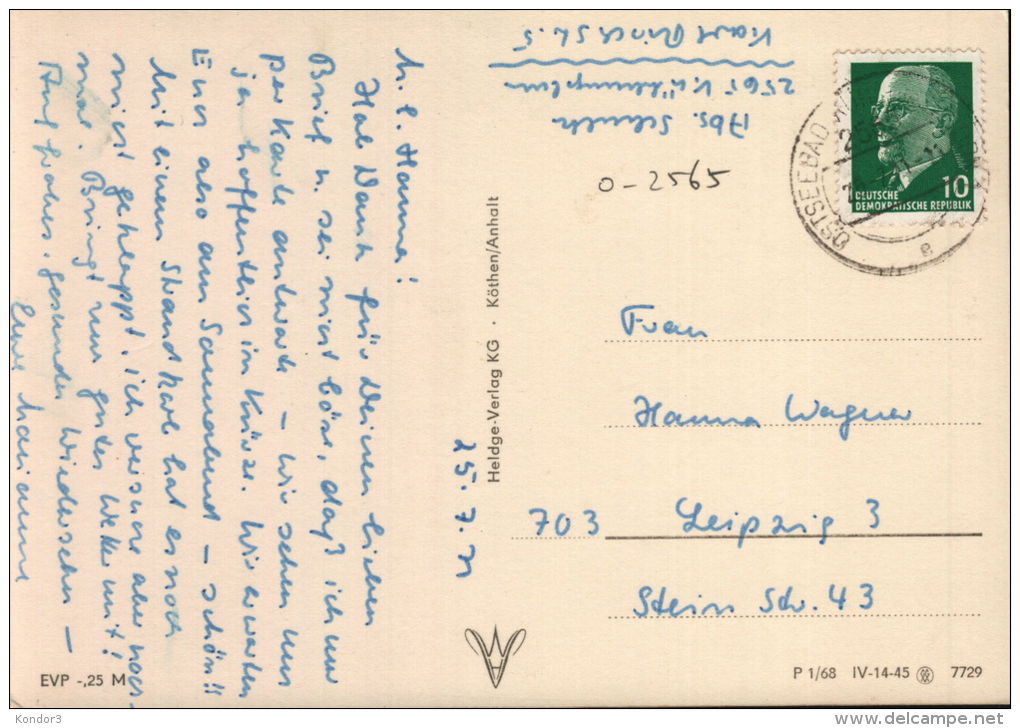 M. l. Hanna!
Hab Dank für Deinen lieben
Brief u. sei nicht böse, daß ich nur
per Karte antworte – wir sehen uns
ja hoffentlich in Kürze. Wir erwarten
Euch also am Sonnabend – schön!!
Mit einem Strandkorb hat es noch
nicht geklappt. Ich versuche aber noch
mal. Bringt nur gutes Wetter mit!
Auf frohes, gesundes Wiedersehen –
Eure Marianne
25. 7. 71
Abs. Schulz
2565 Kühlungsborn
Karl Str. 5
o-2565
OSTSEEBAD
DEUTSCHE
DEMOKRATISCHE REPUBLIK
10
e
Frau
Hanna Wagner
703 Leipzig 3
Stein Str. 43
Heldge-Verlag KG · Köthen/Anhalt
EVP -,25 M
P 1/68 IV-14-45 7729
Kondor3